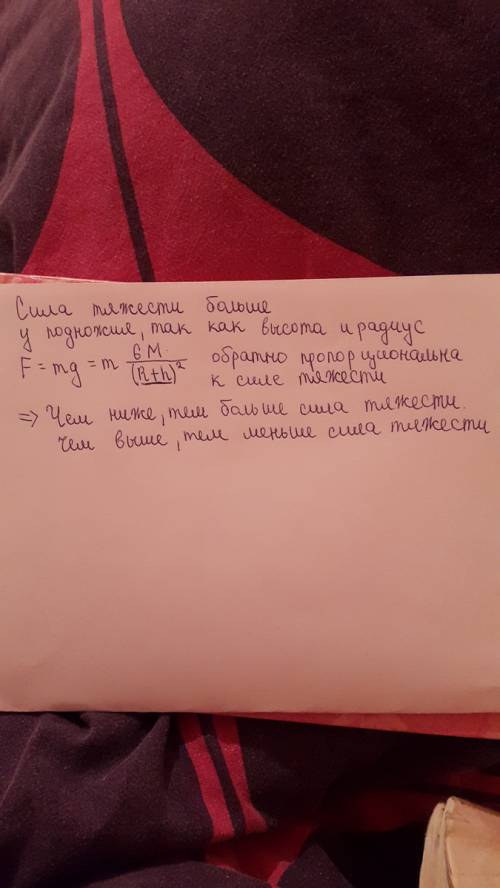 Сила тяжести больше
у подножия, так как высота и радиус
F = mg = m GM/(R+h)² обратно пропорциональна
к силе тяжести
=> Чем ниже, тем больше сила тяжести.
Чем выше, тем меньше сила тяжести